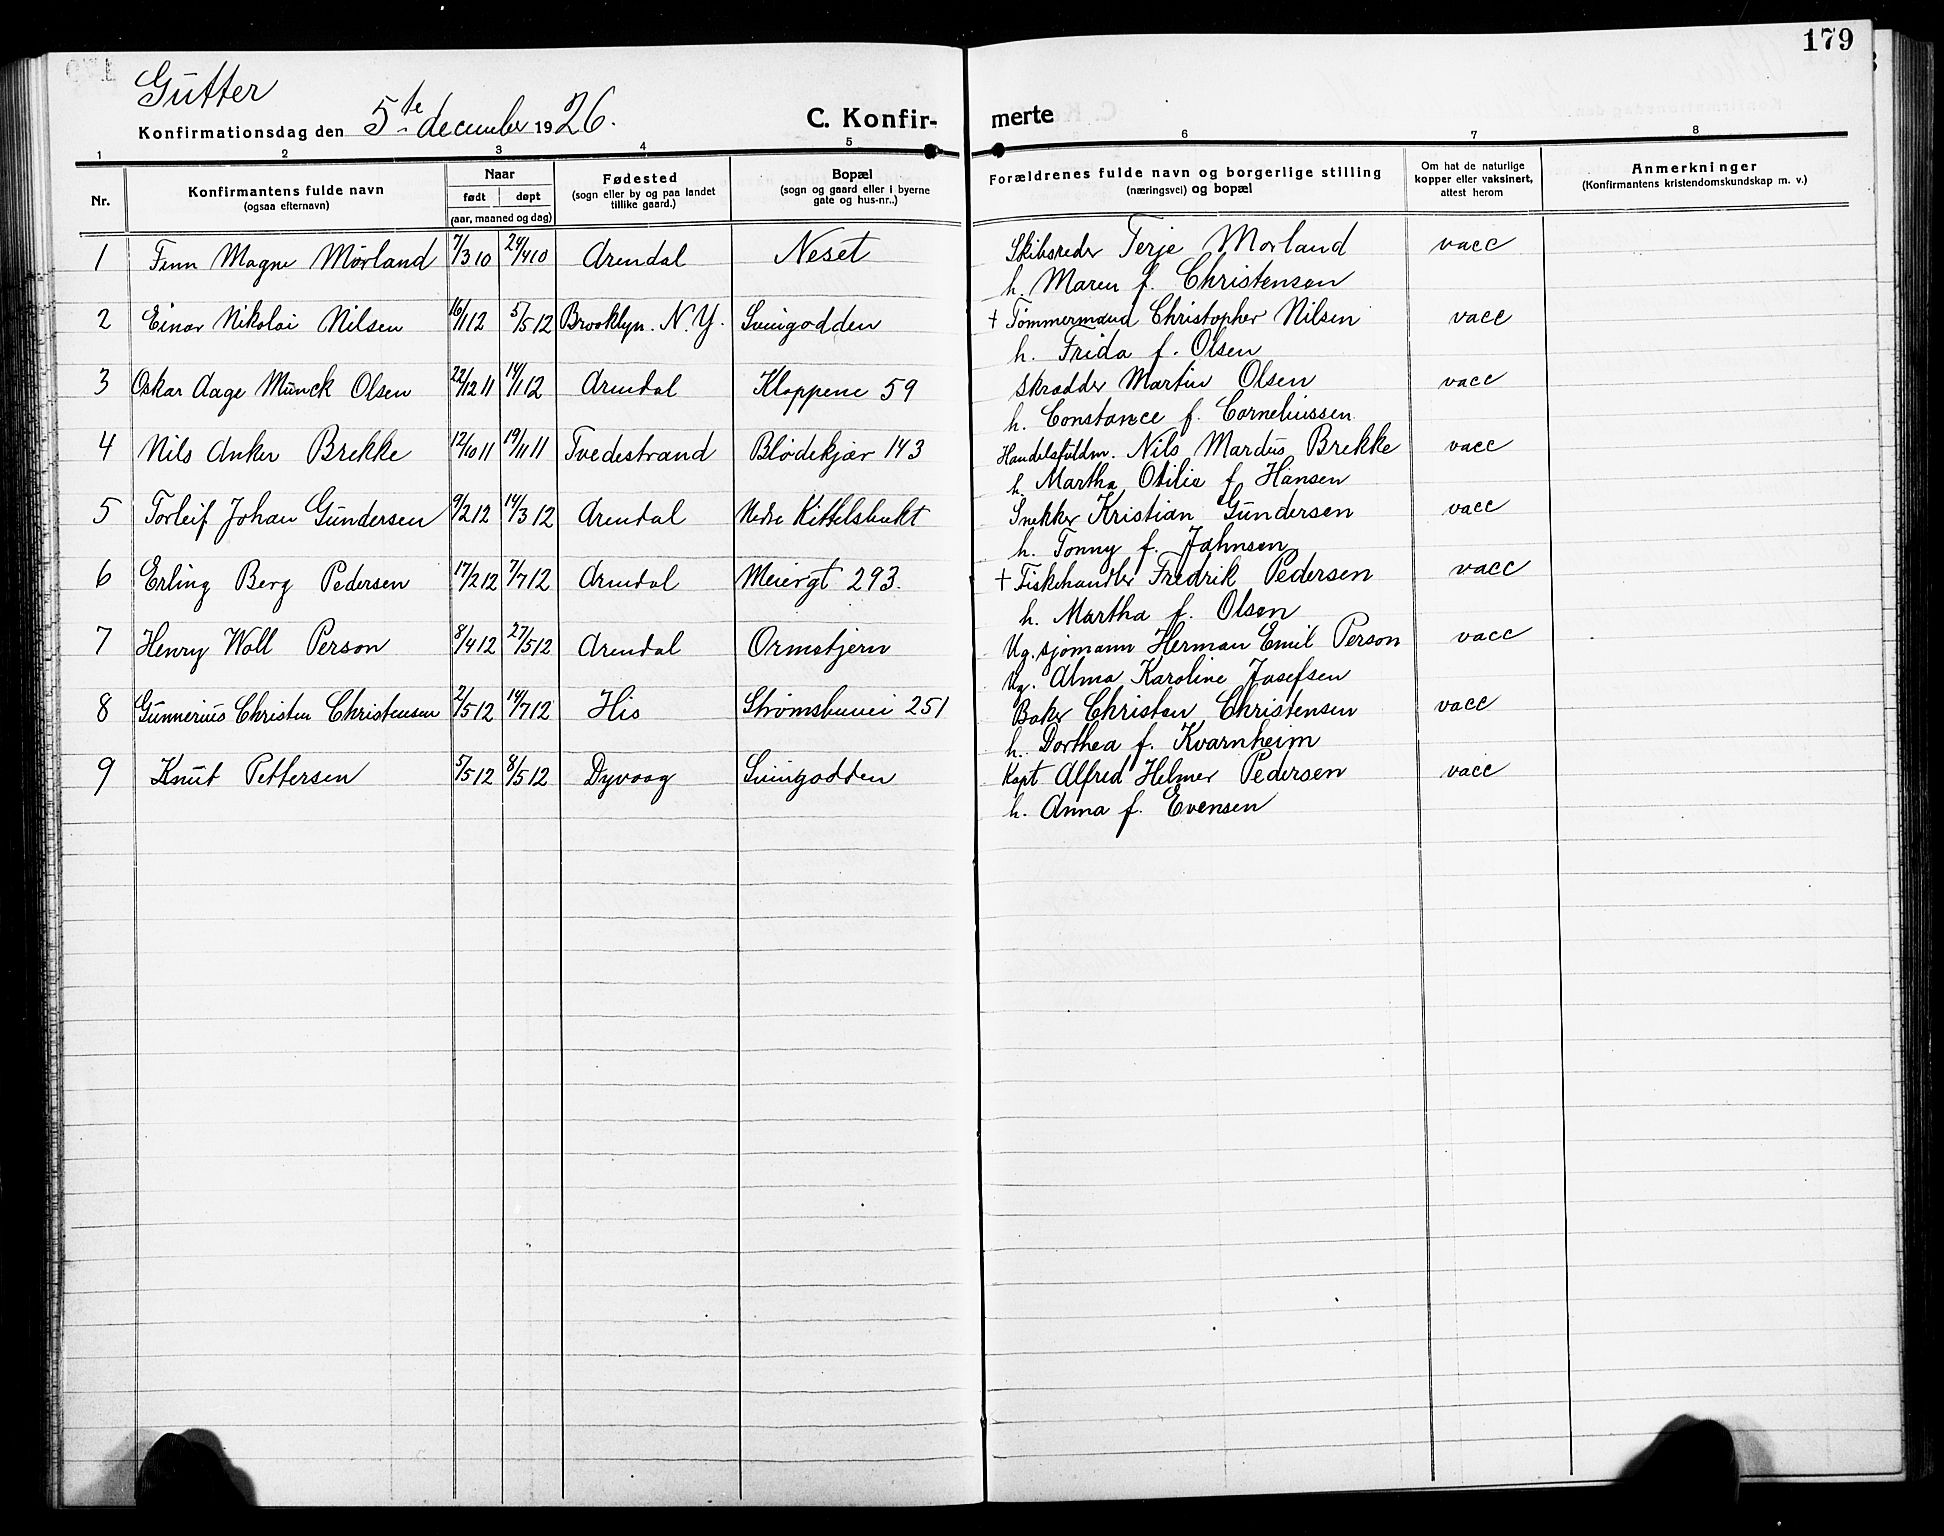 179
Gutter
Konfirmationsdag den 5te december 1926.
C. Konfir- merte
1 2 3 4 5 6 7 8
Nr.
Konfirmantens fulde navn
(ogsaa efternavn)
Naar
født døpt
(aar, maaned og dag)
Fødested
(sogn eller by og paa landet
tillike gaard.)
Bopæl
(sogn og gaard eller i byerne
gate og hus-nr.)
Forældrenes fulde navn og borgerlige stilling
(næringsvei) og bopæl
Om hat de naturlige
kopper eller vaksinert,
attest herom
Anmerkninger
(Konfirmantens kristendomskundskap m. v.)
1 Finn Magne Mørland 7/3 10 24/4 10 Arendal Neset Skibsreder Terje Mørland vacc
h. Maren f. Christensen
2 Einar Nikolai Nilsen 16/1 12 5/5 12 Brooklyn. N.Y. Svingodden + Tømmermand Christopher Nilsen vacc
h. Frida f. Olsen
3 Oskar Aage Munck Olsen 22/12 11 14/1 12 Arendal Kloppene 59 Skrædder Martin Olsen vacc
h. Constance f. Corneliussen
4 Nils Anker Brekke 12/10 11 19/11 11 Tvedestrand Blødekjær 143 Handelsfuldm. Nils Mardus Brekke vacc
h. Martha Otilie f. Hansen
5 Torleif Johan Gundersen 9/2 12 14/3 12 Arendal Nedre Kittelsbukt Snekker Kristian Gundersen vacc
h. Tonny f. Jahnsen
6 Erling Berg Pedersen 17/2 12 7/7 12 Arendal Meiergt 293. + Fiskehandler Fredrik Pedersen vacc
h. Martha f. Olsen
7 Henry Woll Person 8/4 12 27/5 12 Arendal Ormetjern Ug. sjømann Herman Emil Person vacc
Ug. Alma Karoline Josefsen
8 Gunnerius Christen Christensen 2/5 12 14/7 12 His Strømsbuvei 251 Baker Christen Christensen vacc
h. Dorthea f. Kvarnheim
9 Knut Pettersen 5/5 12 8/5 12 Dyvaag Svingodden Kapt Alfred Helmer Pedersen vacc
h. Anna f. Evensen